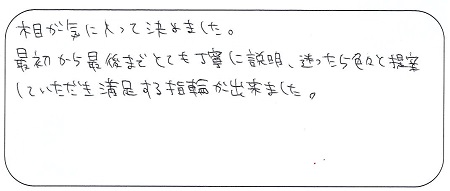 木目が気に入って決めました。
最初から最後までとても丁寧に説明、迷ったら色々と提案
していただき満足する指輪が出来ました。